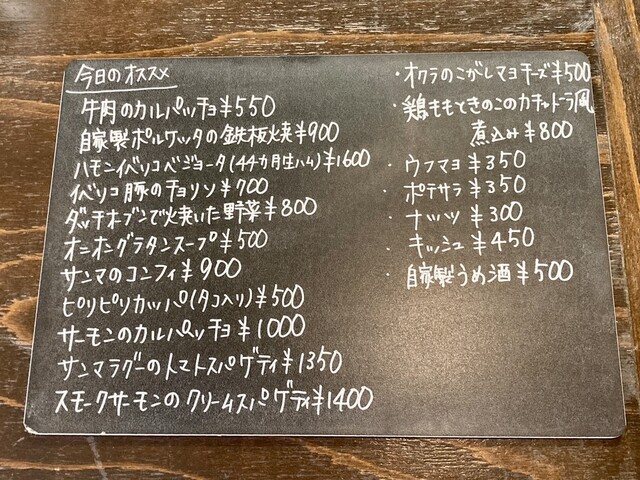 今日のオススメ
牛肉のカルパッチョ¥550
自家製ポルケッタの鉄板焼¥900
ハモンイベリコベジョータ(44カ月生ハム)¥1600
イベリコ豚のチョリソ¥700
ダッチオーブンで焼いた野菜¥800
オニオングラタンスープ¥500
サンマのコンフィ¥900
ピリピリカッパ(タコ入り)¥500
サーモンのカルパッチョ¥1000
サンマラグーのトマトスパゲティ¥1350
スモークサーモンのクリームスパゲティ¥1400
・オクラのこがしマヨチーズ¥500
・鶏ももときのこのカチャトーラ風
煮込み¥800
・ウフマヨ¥350
・ポテサラ¥350
・ナッツ¥300
・キッシュ¥450
・自家製うめ酒¥500